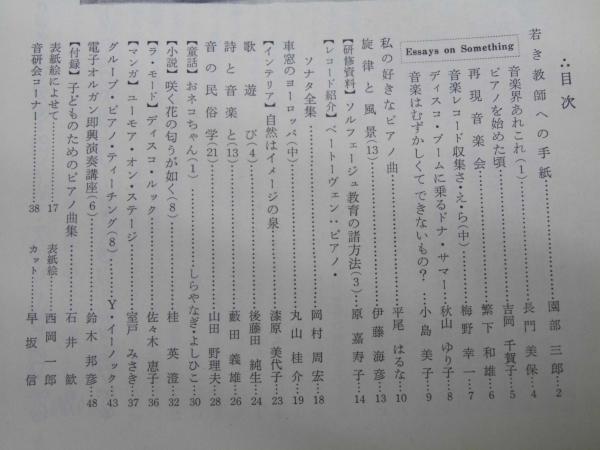 ∴目次
若き教師への手紙……園部 三郎…2
Essays on Something
音楽界あれこれ(1)……長門 美保…4
ピアノを始めた頃……吉岡 千賀子…5
再現音楽会……繁下 和雄…6
音楽レコード収集さ・え・ら(中)……梅野 幸一…7
ディスコ・ブームに乗るドナ・サマー……秋山 ゆり子…8
音楽はむずかしくてできないもの?……小島 美子…9
私の好きなピアノ曲……平尾 はるな…10
旋律と風景(13)……伊藤 海彦…13
【研修資料】ソルフェージュ教育の諸方法(3)……原 嘉寿子…14
【レコード紹介】ベートーヴェン:ピアノ・
ソナタ全集……岡村 周宏…18
車窓のヨーロッパ(中)……丸山 桂介…19
【インテリア】自然はイメージの泉……漆原 美代子…23
歌遊び(4)……後藤田 純生…24
詩と音楽と(13)……薮田 義雄…26
音の民俗学(21)……山田 野理夫…28
【童話】おネコちゃん(1)……しらやなぎ・よしひこ…30
【小説】咲く花の匂うが如く(8)……桂 英澄…32
【ラ・モード】ディスコ・ルック……佐々木 恵子…36
【マンガ】ユーモア・オン・ステージ……室戸 みさき…37
グループ・ピアノ・ティーチング(8)……Y・イーノック…43
電子オルガン即興演奏講座(6)……鈴木 邦彦…48
【付録】子どものためのピアノ曲集……石井 歓
表紙絵によせて……17 表紙絵……西岡 一郎
音研会コーナー……38 カット……早坂 信